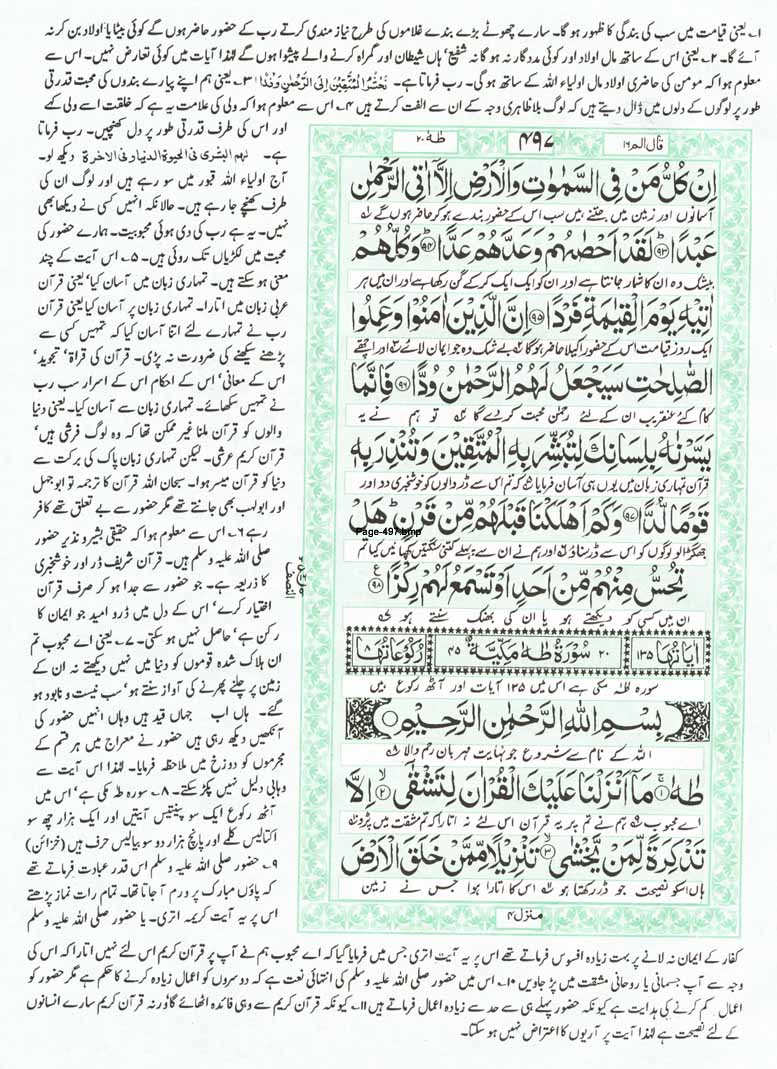 ۱۔ یعنی قیامت میں سب کی بندگی کا ظہور ہو گا۔ سارے چھوٹے بڑے بندے غلاموں کی طرح نیاز مندی کرتے رب کے حضور حاضر ہوں گے کوئی بیٹا یا اولاد بن کر نہ
آئے گا۔ ۲۔ یعنی اس کے ساتھ مال اولاد اور کوئی مددگار نہ ہو گا نہ شفیع' ہاں شیطان اور گمراہ کرنے والے پیشوا ہوں گے لہٰذا آیات میں کوئی تعارض نہیں۔ اس سے
معلوم ہوا کہ مومن کی حاضری اولاد مال اولیاء اللہ کے ساتھ ہو گی۔ رب فرماتا ہے۔ نَحْشُرُ الْمُتَّقِيْنَ اِلَى الرَّحْمٰنِ وَفْدًا ۳۔ یعنی ہم اپنے پیارے بندوں کی محبت قدرتی
طور پر لوگوں کے دلوں میں ڈال دیتے ہیں کہ لوگ بلا ظاہری وجہ کے ان سے الفت کرتے ہیں ۴۔ اس سے معلوم ہوا کہ ولی کی علامت یہ ہے کہ خلقت اسے ولی کہے
اور اس کی طرف قدرتی طور پر دل کھنچیں۔ رب فرماتا
ہے۔ لهم البشرى فى الحيوة الدنيا و فى الاخرة دیکھ لو۔
آج اولیاء اللہ قبور میں سو رہے ہیں اور لوگ ان کی
طرف کھنچے جا رہے ہیں۔ حالانکہ انہیں کسی نے دیکھا بھی
نہیں۔ یہ ہے رب کی دی ہوئی محبوبیت۔ ہمارے حضور کی
محبت میں لکڑیاں تک روئی ہیں۔ ۵۔ اس آیت کے چند
معنی ہو سکتے ہیں۔ تمہاری زبان میں آسان کیا' یعنی قرآن
عربی زبان میں اتارا۔ تمہاری زبان پر آسان کیا یعنی قرآن
رب نے تمہارے لئے اتنا آسان کیا کہ تمہیں کسی سے
پڑھنے سیکھنے کی ضرورت نہ پڑی۔ قرآن کی قراۃ' تجوید'
اس کے معانی' اس کے احکام اس کے اسرار سب رب
نے تمہیں سکھائے۔ تمہاری زبان سے آسان کیا۔ یعنی دنیا
والوں کو قرآن ملنا غیر ممکن تھا کہ وہ لوگ فرشی ہیں'
قرآن کریم عرشی۔ لیکن تمہاری زبان پاک کی برکت سے
دنیا کو قرآن میسر ہوا۔ سبحان اللہ قرآن کا ترجمہ تو ابوجہل
اور ابولہب بھی جانتے تھے مگر حضور سے بے تعلق تھے کافر
رہے ۶۔ اس سے معلوم ہوا کہ حقیقی بشیر و نذیر حضور
صلی اللہ علیہ وسلم ہیں۔ قرآن شریف ڈر اور خوشخبری
کا ذریعہ ہے۔ جو حضور سے جدا ہو کر صرف قرآن
اختیار کرے' اس کے دل میں ڈر و امید جو ایمان کا
رکن ہے' حاصل نہیں ہو سکتی۔ ۷۔ یعنی اے محبوب تم
ان ہلاک شدہ قوموں کو دنیا میں نہیں دیکھتے نہ ان کے
زمین پر چلنے پھرنے کی آواز سنتے ہو' سب نیست و نابود ہو
گئے۔ ہاں اب جہاں قید ہیں وہاں انہیں حضور کی
آنکھیں دیکھ رہی ہیں حضور نے معراج میں ہر قسم کے
مجرموں کو دوزخ میں ملاحظہ فرمایا۔ لہٰذا اس آیت سے
وہابی دلیل نہیں پکڑ سکتے۔ ۸۔ سورہ طہ مکی ہے' اس میں
آٹھ رکوع ایک سو پینتیس آیتیں اور ایک ہزار چھ سو
اکتالیس کلمے اور پانچ ہزار دو سو بیالیس حرف ہیں (خزائن)
۹۔ حضور صلی اللہ علیہ وسلم اس قدر عبادت فرماتے تھے
کہ پاؤں مبارک پر ورم آ جاتا تھا۔ تمام رات نماز پڑھتے
اس پر یہ آیت کریمہ اتری۔ یا حضور صلی اللہ علیہ وسلم
قال الم ۱۶ ۴۹۷ طٰہٰ ۲۰
اِنْ كُلُّ مَنْ فِی السَّمٰوٰتِ وَالْاَرْضِ اِلَّاۤ اٰتِی الرَّحْمٰنِ
آسمانوں اور زمین میں جتنے ہیں سب اس کے حضور بندے ہو کر حاضر ہوں گے
عَبْدًا ۹۳ لَقَدْ اَحْصٰىهُمْ وَعَدَّهُمْ عَدًّا ۹۴ وَكُلُّهُمْ
بیشک وہ ان کا شمار جانتا ہے اور ان کو ایک ایک کر کے گن رکھا ہے اور ان میں ہر
اٰتِیْهِ یَوْمَ الْقِیٰمَةِ فَرْدًا ۹۵ اِنَّ الَّذِیْنَ اٰمَنُوْا وَعَمِلُوا
ایک روز قیامت اس کے حضور اکیلا حاضر ہوگا بے شک وہ جو ایمان لائے اور اچھے
الصّٰلِحٰتِ سَیَجْعَلُ لَهُمُ الرَّحْمٰنُ وُدًّا ۹۶ فَاِنَّمَا
کام کئے عنقریب ان کے لئے رحمٰن محبت کر دے گا تو ہم نے یہ
یَسَّرْنٰهُ بِلِسَانِكَ لِتُبَشِّرَ بِهِ الْمُتَّقِیْنَ وَتُنْذِرَ بِهٖ
قرآن تمہاری زبان میں یوں ہی آسان فرمایا کہ تم اس سے ڈر والوں کو خوشخبری دو اور
قَوْمًا لُّدًّا ۹۷ وَكَمْ اَهْلَكْنَا قَبْلَهُمْ مِّنْ قَرْنٍ هَلْ
Page-497.bmp
جھگڑالو لوگوں کو اس سے ڈر سناؤ اور ہم نے ان سے پہلے کتنی سنگتیں کھپائیں کیا تم
تُحِسُّ مِنْهُمْ مِّنْ اَحَدٍ اَوْ تَسْمَعُ لَهُمْ رِكْزًا ۹۸ ع
ان میں کسی کو دیکھتے ہو یا ان کی بھنک سنتے ہو
النصف
اٰیَاتُهَا ۱۳۵ ۲۰ سُوْرَةُ طٰهٰ مَكِّیَّةٌ ۴۵ رُكُوْعَاتُهَا ۸
سورہ طٰہٰ مکی ہے اس میں ۱۳۵ آیات اور آٹھ رکوع ہیں
بِسْمِ اللّٰهِ الرَّحْمٰنِ الرَّحِیْمِ
اللہ کے نام سے شروع جو نہایت مہربان رحم والا
طٰهٰ ۱ مَاۤ اَنْزَلْنَا عَلَیْكَ الْقُرْاٰنَ لِتَشْقٰۤی ۲ اِلَّا
اے محبوب ہم نے تم پر یہ قرآن اس لئے نہ اتارا کہ تم مشقت میں پڑو
تَذْكِرَةً لِّمَنْ یَّخْشٰی ۳ تَنْزِیْلًا مِّمَّنْ خَلَقَ الْاَرْضَ
ہاں اسکو نصیحت جو ڈر رکھتا ہو اس کا اتارا ہوا جس نے زمین
منزل ۴
کفار کے ایمان نہ لانے پر بہت زیادہ افسوس فرماتے تھے اس پر یہ آیت اتری جس میں فرمایا گیا کہ اے محبوب ہم نے آپ پر قرآن کریم اس لئے نہیں اتارا کہ اس کی
وجہ سے آپ جسمانی یا روحانی مشقت میں پڑ جاویں ۱۰۔ اس میں حضور صلی اللہ علیہ وسلم کی انتہائی نعت ہے کہ دوسروں کو اعمال زیادہ کرنے کا حکم ہے مگر حضور کو
اعمال کم کرنے کی ہدایت ہے کیونکہ حضور پہلے ہی سے حد سے زیادہ اعمال فرماتے ہیں ۱۱۔ کیونکہ قرآن کریم سے وہی فائدہ اٹھائے گا ورنہ قرآن کریم سارے انسانوں
کے لئے نصیحت ہے لہٰذا آیت پر آریوں کا اعتراض نہیں ہو سکتا۔